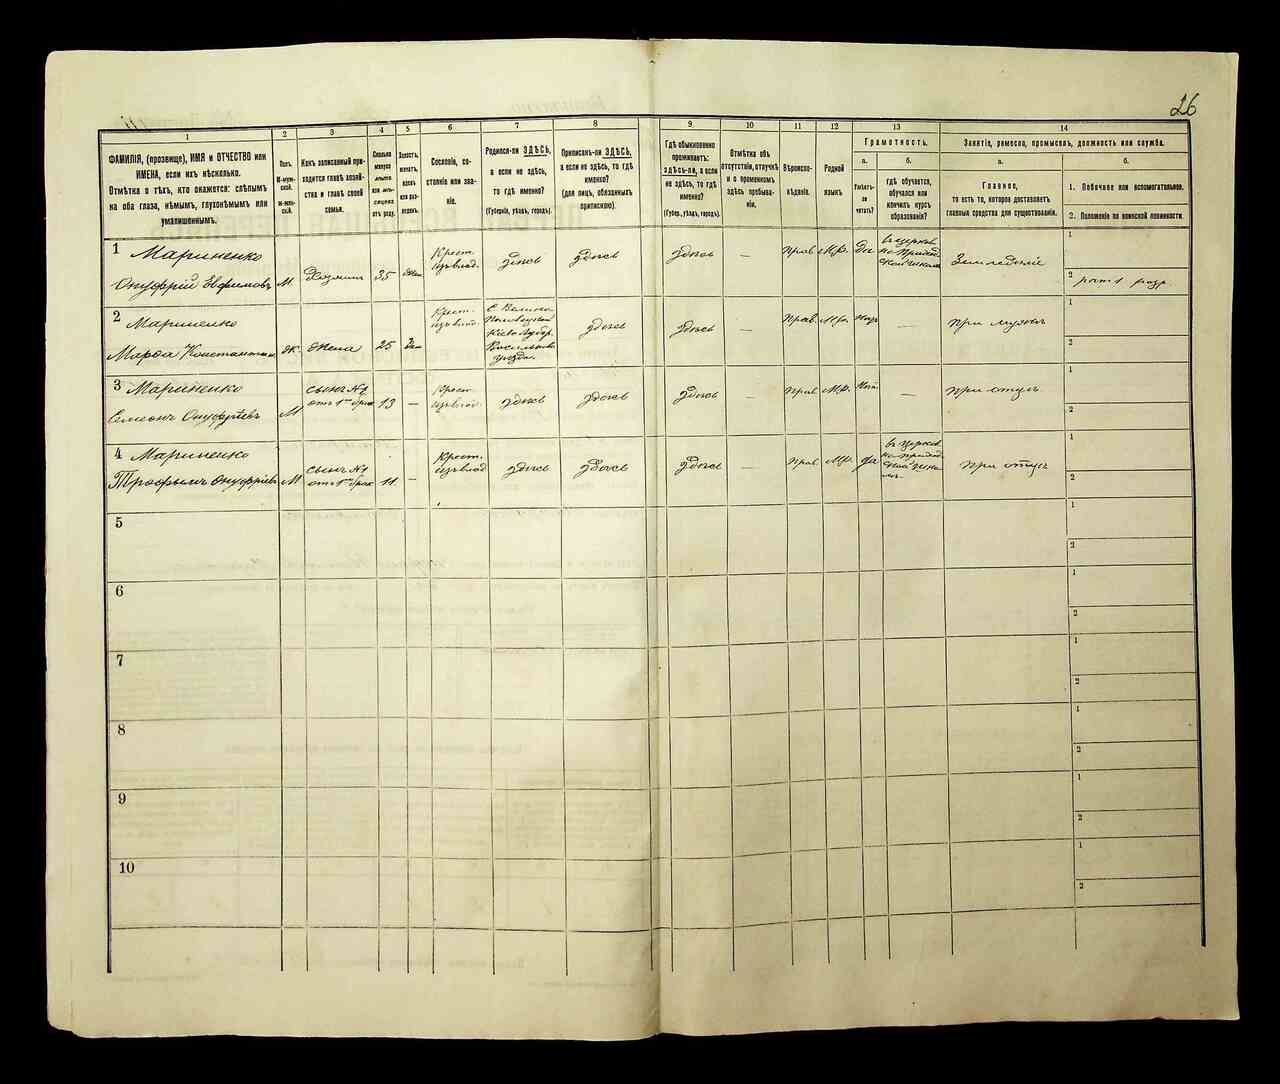 26
1
2
3
4
5
6
7
8
9
10
11
12
13
14
ФАМИЛІЯ, (прозвище), ИМЯ и ОТЧЕСТВО или
ИМЕНА, если ихъ нѣсколько.
Отмѣтка о тѣхъ, кто окажется: слѣпымъ
на оба глаза, нѣмымъ, глухонѣмымъ или
умалишеннымъ.
Полъ.
М-муж-
ской.
Ж-жен-
скій.
Какъ записанный при-
ходится главѣ хозяй-
ства и главѣ своей
семьи.
Сколько
минуло
лѣтъ
или мѣ-
сяцевъ
отъ роду.
Холостъ,
женатъ,
вдовъ
или раз-
веденъ.
Сословіе, со-
стояніе или зва-
ніе.
Родился-ли ЗДѢСЬ,
а если не здѣсь,
то гдѣ именно?
(Губернія, уѣздъ, городъ).
Приписанъ-ли ЗДѢСЬ,
а если не здѣсь, то гдѣ
именно?
(для лицъ, обязанныхъ
припискою).
Гдѣ обыкновенно
проживаетъ:
здѣсь-ли, а если
не здѣсь, то гдѣ
именно?
(Губер., уѣздъ, городъ).
Отмѣтка объ
отсутствіи, отлучкѣ
и о временномъ
здѣсь пребыва-
ніи.
Вѣроиспо-
вѣданіе.
Родной
языкъ.
Грамотность.
а.
Умѣетъ-
ли
читать?
б.
гдѣ обучается,
обучался или
кончилъ курсъ
образованія?
Занятіе, ремесло, промыселъ, должность или служба.
а.
Главное,
то есть то, которое доставляетъ
главныя средства для существованія.
б.
1. Побочное или вспомогательное.
2. Положеніе по воинской повинности.
1
Мариненко
Онуфрій Евфимовъ
М
Хозяинъ
35
жен
Крест.
изъ влад.
здѣсь
здѣсь
здѣсь
—
Прав
М.р.
Да
въ церков
но приход
ской школѣ
Земледѣліе
1
2
ратн 1 разр
2
Мариненко
Марфа Константин
Ж.
Жена
25
Зам
Крест.
изъ влад.
С. Велика
Половецкая
Кіевс. губер.
Васильков
уѣзда.
здѣсь
здѣсь
—
Прав
М.р.
Нѣтъ
—
при мужѣ
1
2
3
Мариненко
Семеонъ Онуфріевъ
М
сынъ
отъ 1го брак
13
—
Крест.
изъ влад.
здѣсь
здѣсь
здѣсь
—
Прав
М.р.
Нѣт
—
при отцѣ
1
2
4
Мариненко
Трофимъ Онуфріевъ
М
сынъ
отъ 1го брак
11
—
Крест.
изъ влад
здѣсь
здѣсь
здѣсь
—
Прав
М.р.
Да
въ церков
но приход
ской шко
лѣ
при отцѣ
1
2
5
1
2
6
1
2
7
1
2
8
1
2
9
1
2
10
1
2